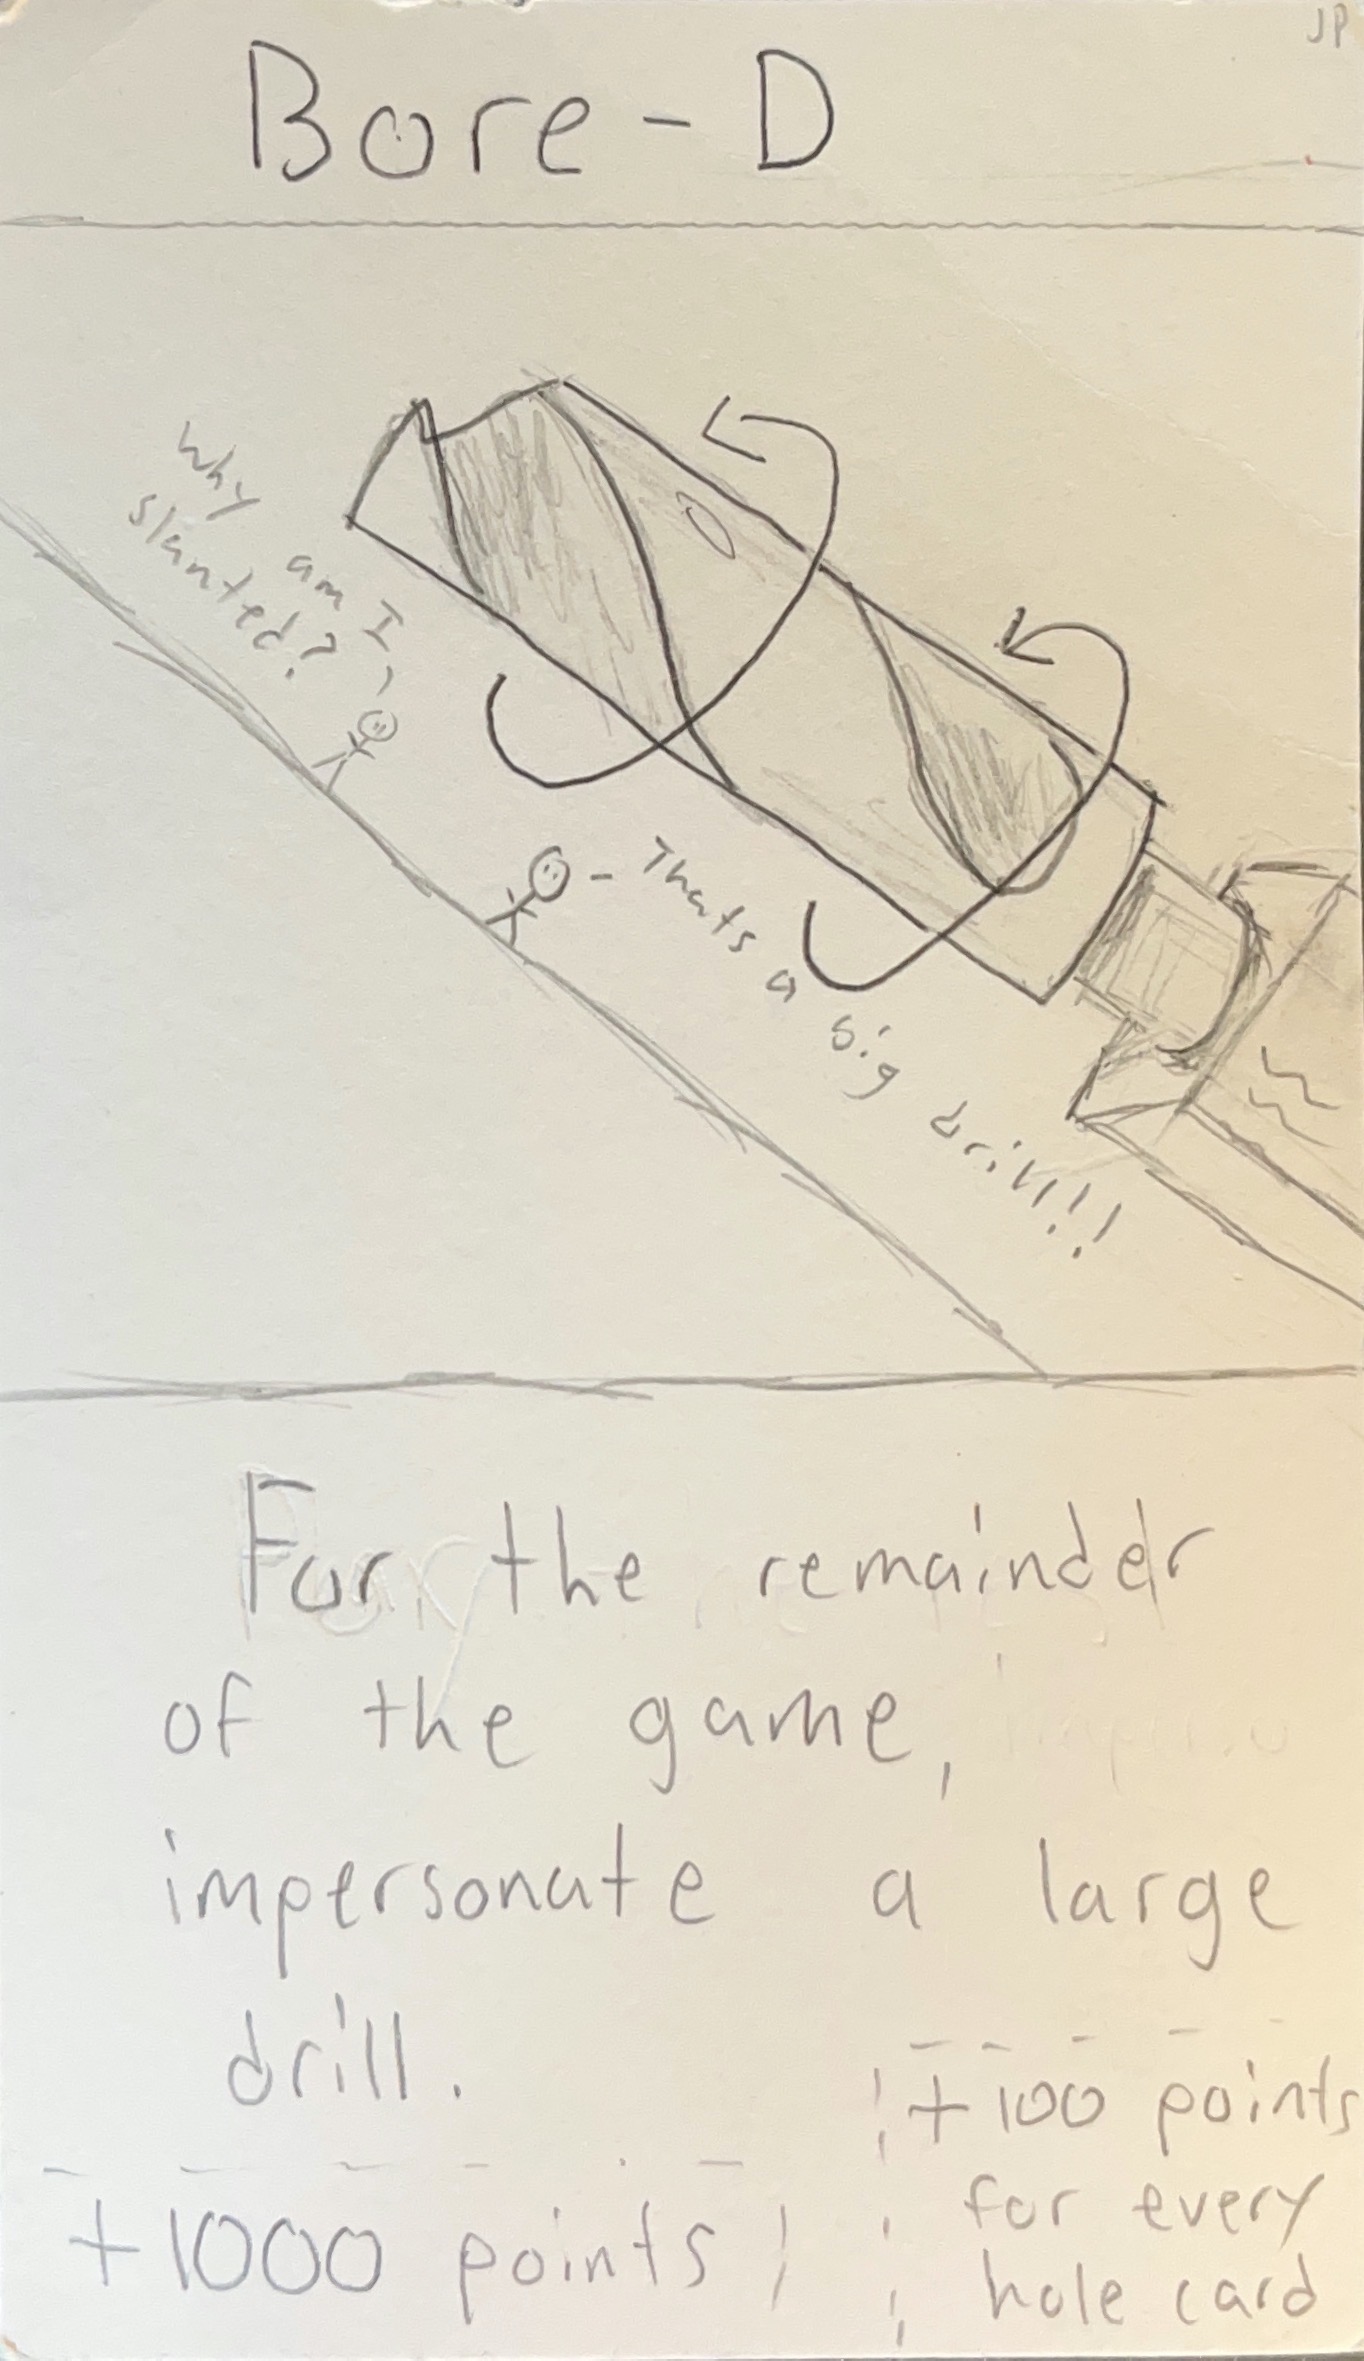 JP
Bore-D
Why am I
slanted?
Thats a big drill!!
For the remainder
of the game,
impersonate a large
drill.
+100 points
for every
hole card
+1000 points